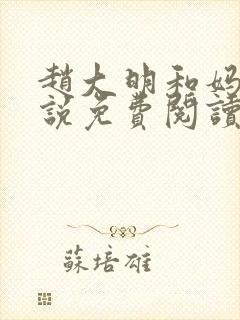 趙大明和妈
說免費閱讀
蘇培雄